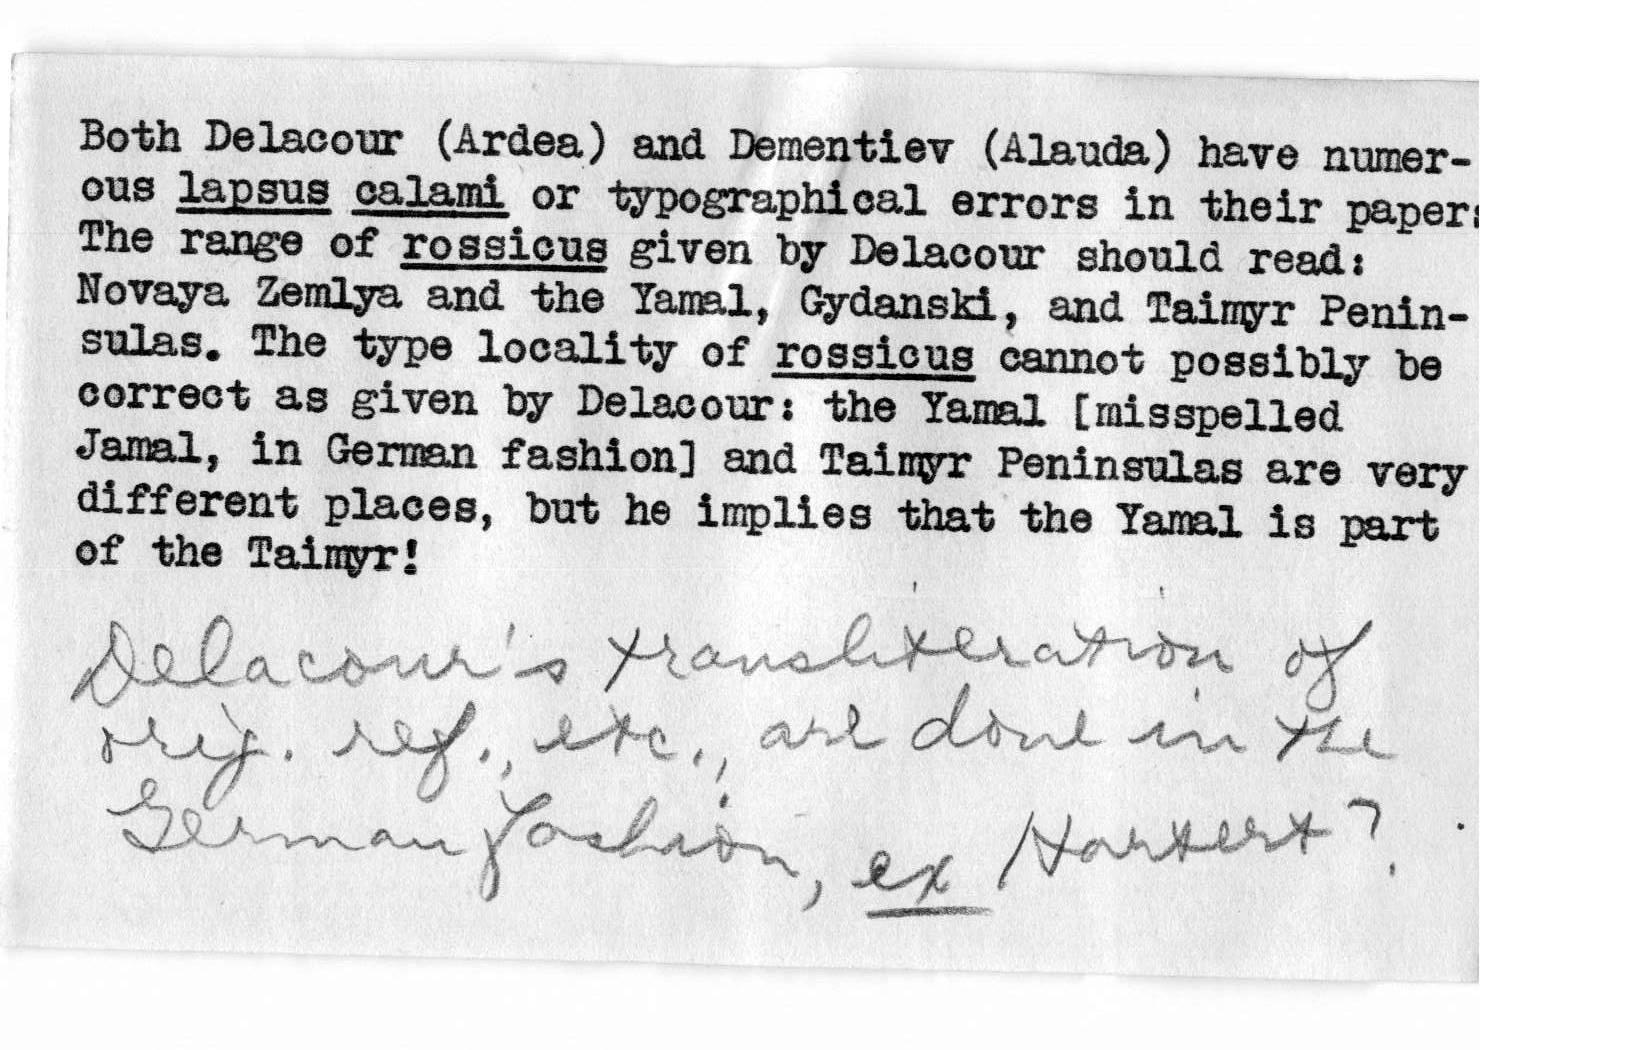 Both Delacour (Ardea) and Dementiev (Alauda) have numer-
ous lapsus calami or typographical errors in their papers
The range of rossicus given by Delacour should read:
Novaya Zemlya and the Yamal, Gydanski, and Taimyr Penin-
sulas. The type locality of rossicus cannot possibly be
correct as given by Delacour: the Yamal [misspelled
Jamal, in German fashion] and Taimyr Peninsulas are very
different places, but he implies that the Yamal is part
of the Taimyr!
Delacour's transliteration of
orig. ref., etc., are done in the
German fashion, ex Hartert?